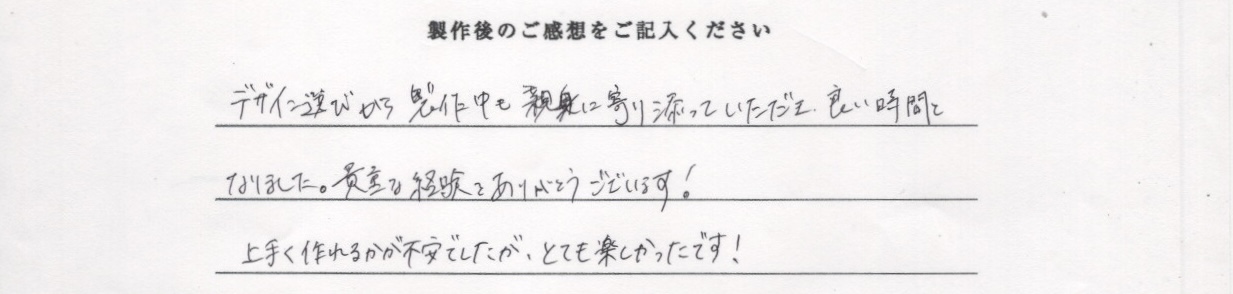 製作後のご感想をご記入ください
デザイン選びから製作中も親身に寄り添っていただき、良い時間と
なりました。貴重な経験をありがとうございます!
上手く作れるかが不安でしたが、とても楽しかったです!